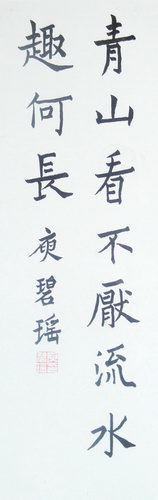 青山看不厭流水
趣何長
庾碧瑶